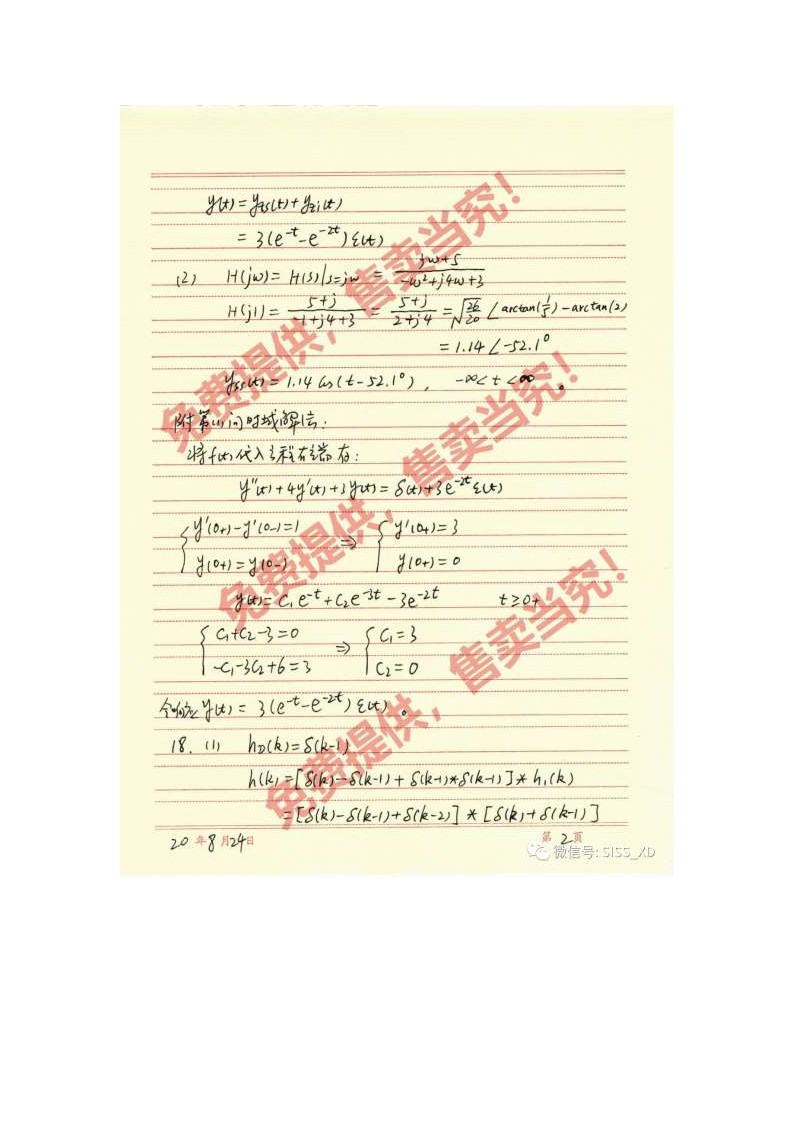 y(t)=yzs(t)+yzi(t)
=3(e^-t-e^-2t)ε(t)
(2) H(jω)=H(s)|s=jω = (jω+5)/(-ω²+j4ω+3)
H(j1)=(5+j)/(-1+j4+3)=(5+j)/(2+j4)=√(26/20)∠arctan(1/5)-arctan(2)
=1.14∠-52.1°
yss(t)=1.14cos(t-52.1°), -∞<t<∞。
附第(1)问时域解法:
将f(t)代入方程右端有:
y''(t)+4y'(t)+3y(t)=δ(t)+3e^-2tε(t)
{y'(0+)-y'(0-)=1 ⇒ {y'(0+)=3
y(0+)=y(0-) y(0+)=0
y(t)=C1e^-t+C2e^-3t-3e^-2t t≥0+
{C1+C2-3=0 ⇒ {C1=3
-C1-3C2+6=3 C2=0
全响应y(t)=3(e^-t-e^-2t)ε(t)。
18. (1) hD(k)=δ(k-1)
h(k)=[δ(k)-δ(k-1)+δ(k-1)*δ(k-1)]*h1(k)
=[δ(k)-δ(k-1)+δ(k-2)]*[δ(k)+δ(k-1)]
20年8月24日 第2页
微信号: SISS_XD
免费提供,售卖当究!
免费提供,售卖当究!
免费提供,售卖当究!